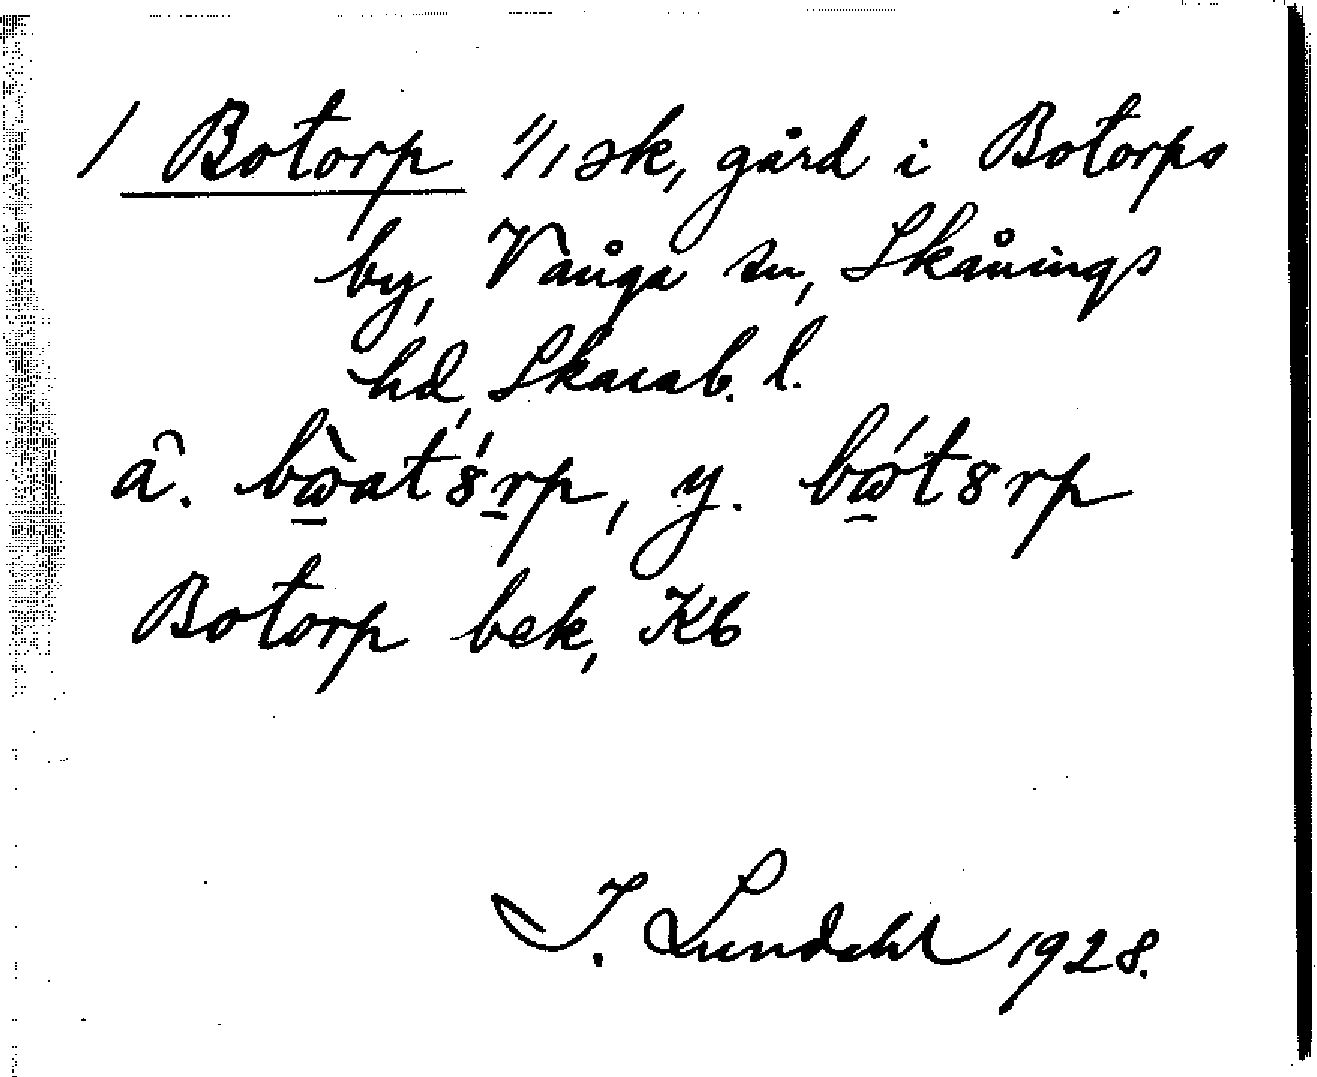 / Botorp 1/1 sk, gård i Botorps
by, Vånga sn, Skånings
hd, Skarab. l.
â. bὼ̲at́8r̲p, y. bώ̲t8rp
Botorp bek, Kb
I. Lundahl 1928.